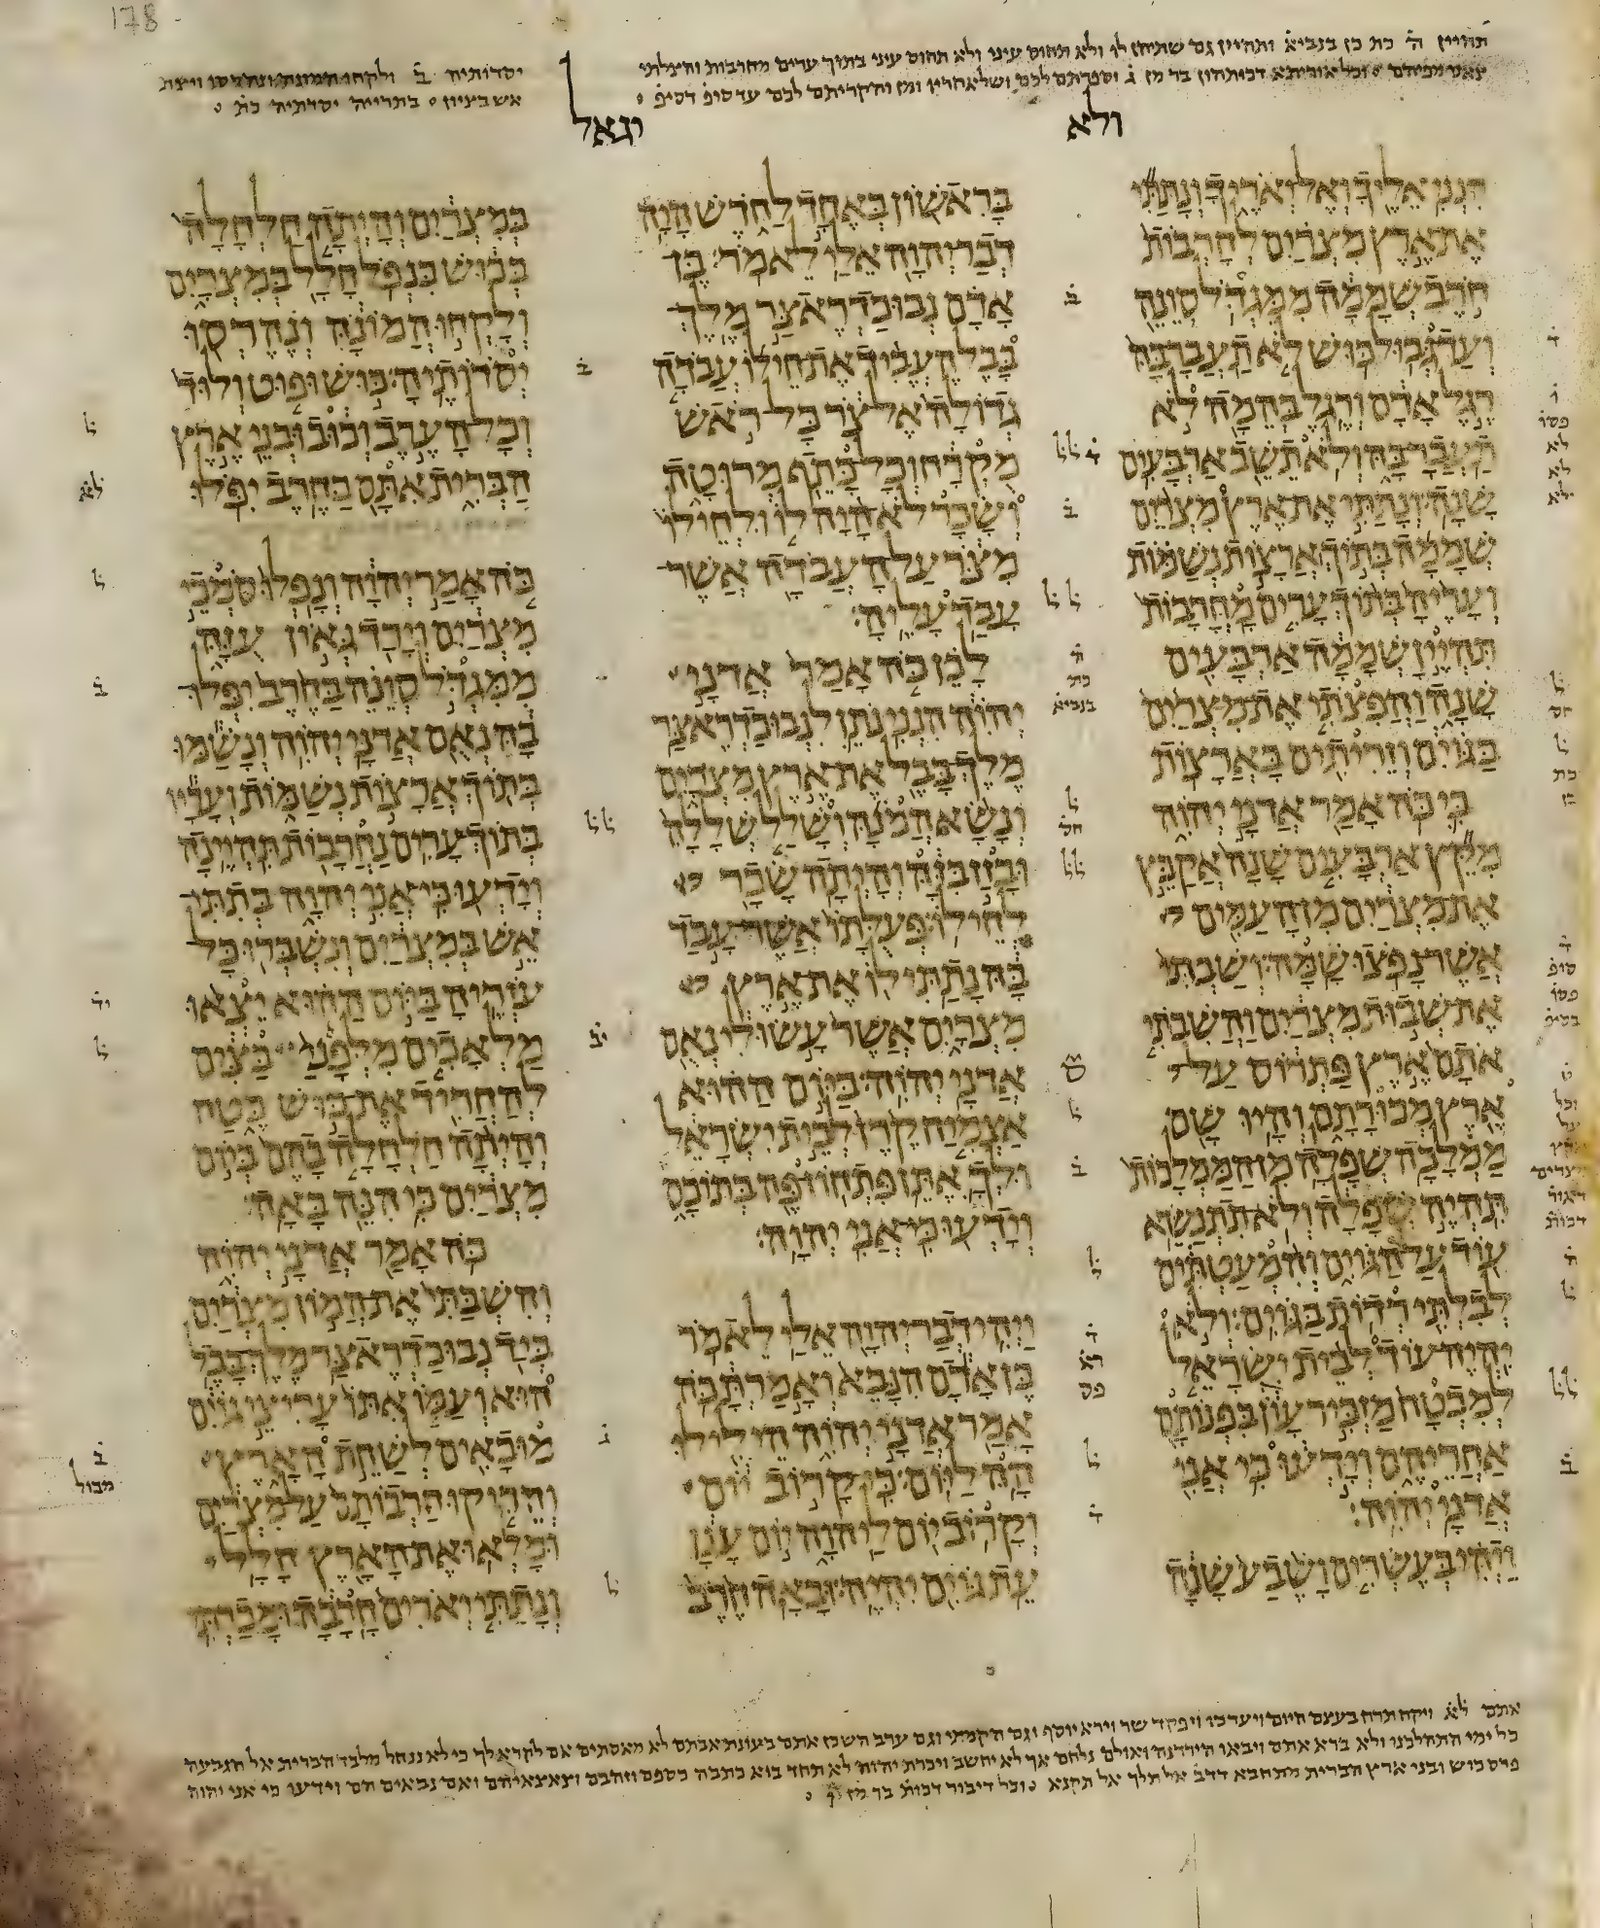 178
תהיין ה כת כן בנביא ותהיין גם שתיהן לו ולא תחוס עיני ולא תחוס עיני בתוך ערים מחרבות והצלתי
צאני מפיהם וכל אוריתא דכותהון בר מן וספרתם לכם ושלאחריו ומן והקריתם לכם עד סופ דסיפ
יסדותיה ב ולקחו המונה ונהרסו ויצת
אש בציון בתרייה יסדתיה כת
ולא
יגאל
הנני אליך ואל יאריך ונתתי
את ארץ מצרים לחרבות
חרב שממה ממגדל סונה
ועד גבול כוש לא תעבר בה
רגל אדם ורגל בהמה לא
תעבר בה ולא תשב ארבעים
שנה ונתתי את ארץ מצרים
שממה בתוך ארצות נשמות
ועריה בתוך ערים מחרבות
תהיין שממה ארבעים
שנה והפצתי את מצרים
בגוים וזריתים בארצות
כי כה אמר אדני יהוה
מקץ ארבעים שנה אקבץ
את מצרים מן העמים
אשר נפצו שמה ושבתי
את שבות מצרים והשבתי
אתם ארץ פתרוס על
ארץ מכורתם והיו שם
ממלכה שפלה מן הממלכות
תהיה שפלה ולא תתנשא
עוד על הגוים והמעטתים
לבלתי רדות בגוים ולא
יהיה עוד לבית ישראל
למבטח מזכיר עון בפנותם
אחריהם וידעו כי אני
אדני יהוה
ויהי בעשרים ושבע שנה
בראשון באחד לחדש היה
דבר יהוה אלי לאמר בן
אדם נבוכדראצר מלך
בבל העביד את חילו עבדה
גדולה אל צר כל ראש
מקרח וכל כתף מרוטה
ושכר לא היה לו ולחילו
מצר על העבדה אשר
עבד עליה
לכן כה אמר אדני
יהוה הנני נתן לנבוכדראצר
מלך בבל את ארץ מצרים
ונשא המנה ושלל שללה
ובזז בזה והיתה שכר
לחילו פעלתו אשר עבד
בה נתתי לו את ארץ
מצרים אשר עשו לי נאם
אדני יהוה ביום ההוא
אצמיח קרן לבית ישראל
ולך אתן פתחון פה בתוכם
וידעו כי אני יהוה
ויהי דבר יהוה אלי לאמר
בן אדם הנבא ואמרת כה
אמר אדני יהוה הילילו
הה ליום כי קרוב יום
וקרוב יום ליהוה יום ענן
עת גוים יהיה ובאה חרב
במצרים והיתה חלחלה
בכוש בנפל חלל במצרים
ולקחו המונה ונהרסו
יסדותיה כוש ופוט ולוד
וכל הערב וכוב ובני ארץ
הברית אתם בחרב יפלו
כה אמר יהוה ונפלו סמכי
מצרים וירד גאון עזה
ממגדל סונה בחרב יפלו
בה נאם אדני יהוה ונשמו
בתוך ארצות נשמות ועריו
בתוך ערים נחרבות תהיינה
וידעו כי אני יהוה בתתי
אש במצרים ונשברו כל
עזריה ביום ההוא יצאו
מלאכים מלפני בצים
להחריד את כוש בטח
והיתה חלחלה בהם ביום
מצרים כי הנה באה
כה אמר אדני יהוה
והשבתי את המון מצרים
ביד נבוכדראצר מלך בבל
הוא ועמו אתו עריצי גוים
מובאים לשחת הארץ
והריקו חרבותם על מצרים
ומלאו את הארץ חלל
ונתתי יארים חרבה ומכרתי
אתם לא ויקח תרח בעצם היום ויערכו ויפקד שר וירא יוסף וגם הקמתי וגם ערב השכן אתם בעונת אבתם לא מאסתים אם לקרא לך כי לא ננחל מלבד הברית אל הגבעה
כל ימי התהלכנו ולא ברא אתם ויבאו הירדנה ואולם נלחם אך לא יחשב ויכרת יהוה לא תחד בוא כתבה כספם וזהבם וצאצאיהם ואם נבאים הם וידעו כי אני יהוה
פרס כוש ובני ארץ הברית מתחבא דדב אל תלך אל תקנא וכל דיבור דכות בר מן